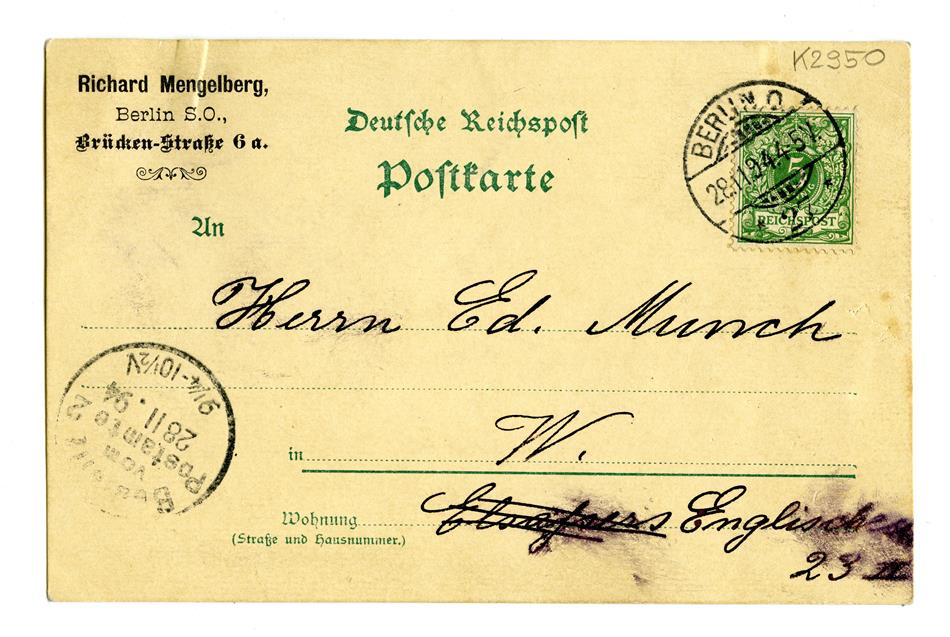 K2950
Richard Mengelberg,
Berlin S.O.,
Brücken-Straße 6 a.
Deutsche Reichspost
Postkarte
BERLIN, O.
28.11.94.4-5N.
* 2 *
5
REICHSPOST
An
Herrn Ed. Munch
in W.
Wohnung Englische
(Straße und Hausnummer.)
23 II
Bestellt
vom
Postamte 2
28 11. 94
9¼-10½V